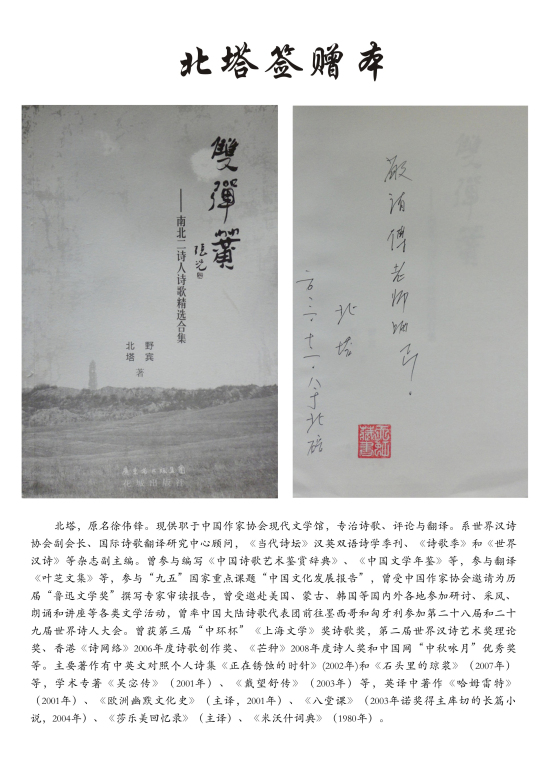 北塔签赠本
雙彈簧
——南北二诗人诗歌精选合集
野宾
北塔
著
广东省出版集团
花城出版社
敬请傅老师
北塔
于北碚
藏書
北塔，原名徐伟锋。现供职于中国作家协会现代文学馆，专治诗歌、评论与翻译。系世界汉诗
协会副会长、国际诗歌翻译研究中心顾问，《当代诗坛》汉英双语诗学季刊、《诗歌季》和《世界
汉诗》等杂志副主编。曾参与编写《中国诗歌艺术鉴赏辞典》、《中国文学年鉴》等，参与翻译
《叶芝文集》等，参与“九五”国家重点课题“中国文化发展报告”，曾受中国作家协会邀请为历
届“鲁迅文学奖”撰写专家审读报告，曾受邀赴美国、蒙古、韩国等国内外各地参加研讨、采风、
朗诵和讲座等各类文学活动，曾率中国大陆诗歌代表团前往墨西哥和匈牙利参加第二十八届和二十
九届世界诗人大会。曾获第三届“中环杯”《上海文学》奖诗歌奖，第二届世界汉诗艺术奖理论
奖、香港《诗网络》2006年度诗歌创作奖、《芒种》2008年度诗人奖和中国网“中秋咏月”优秀奖
等。主要著作有中英文对照个人诗集《正在锈蚀的时针》(2002年)和《石头里的琼浆》（2007年）
等，学术专著《吴宓传》（2001年）、《戴望舒传》（2003年）等，英译中著作《哈姆雷特》
（2001年）、《欧洲幽默文化史》（主译，2001年）、《八堂课》（2003年诺奖得主库切的长篇小
说，2004年）、《莎乐美回忆录》（主译）、《米沃什词典》（1980年）。